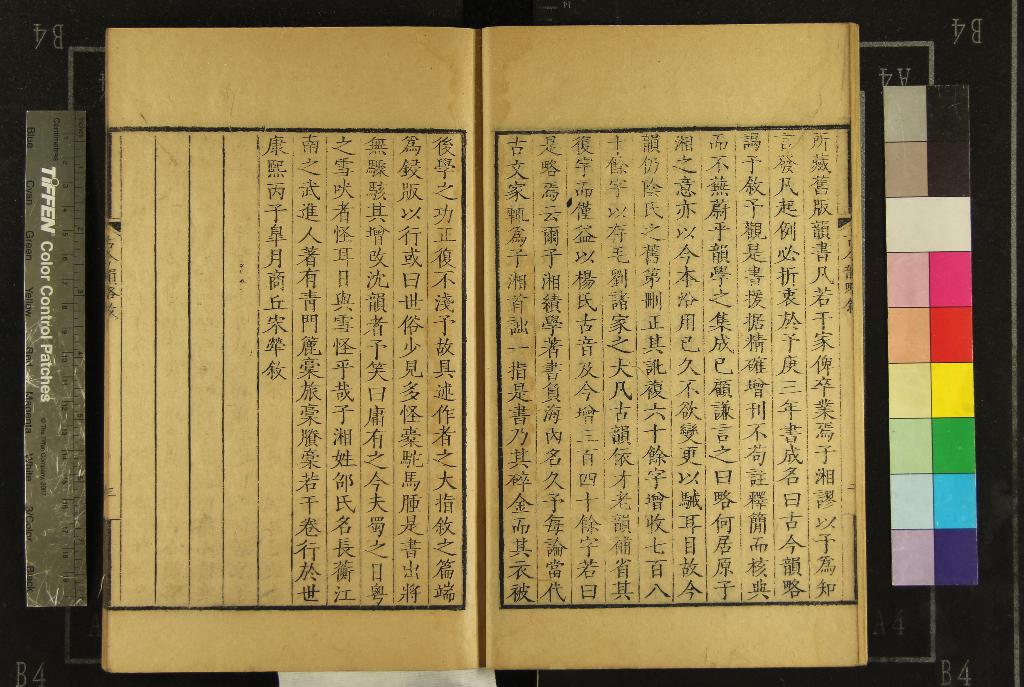 所藏舊版韻書凡若干家俾卒業焉子湘謬以予為知
言發凡起例必折衷於予庚三年書成名曰古今韻略
謁予敘予觀是書援据精確增刊不苟註釋簡而核典
而不蕪蔚乎韻學之集成已顧謙言之曰略何居原子
湘之意亦以今本沿用已久不欲變更以駴耳目故今
韻仍陰氏之舊第刪正其訛複六十餘字增收七百八
十餘字以存毛劉諸家之大凡古韻依才老韻補省其
復字而僅益以楊氏古音及今增三百四十餘字若曰
是略焉云爾子湘績學著書負海內名久予每論當代
古文家輒為子湘首詘一指是書乃其碎金而其衣被
後學之功正復不淺予故具述作者之大指敘之篇端
為鋟版以行或曰世俗少見多怪橐駝馬腫是書出將
無驟駭其增改沈韻者予笑曰庸有之今夫蜀之日粵
之雪吠者怪耳日與雪怪乎哉子湘姓邵氏名長蘅江
南之武進人著有青門簏稾旅稾賸稾若干卷行於世
康熙丙子皋月商丘宋犖敘
古今韻略敘
三
TIFFEN Color Control Patches
Blue
Cyan
Green
Yellow
Red
Magenta
White
3/Color
Black
B4
A4